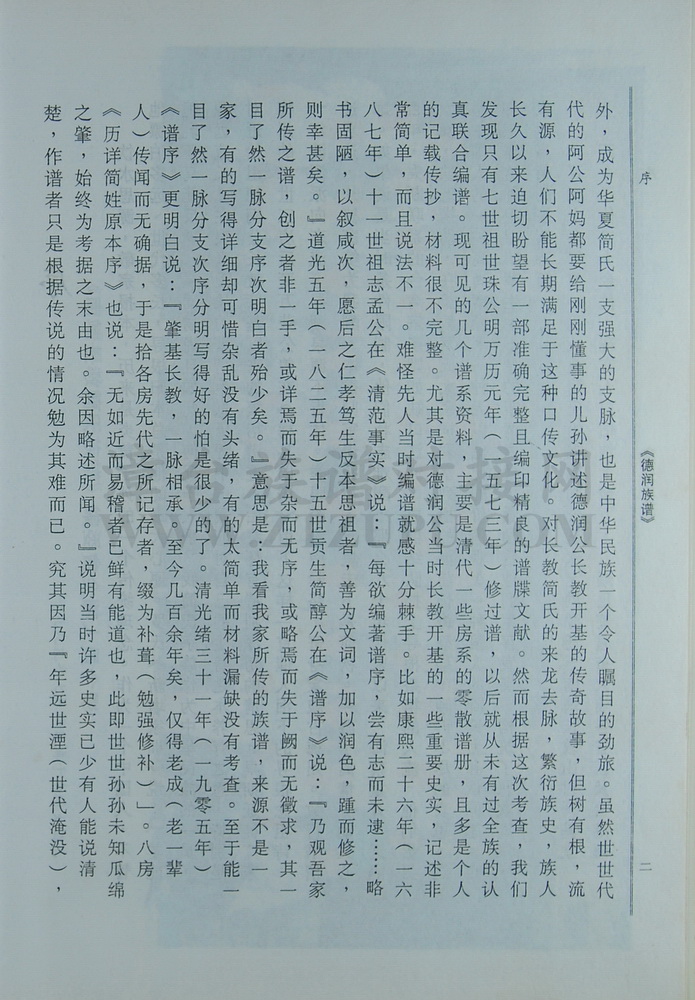 《德润族谱》
序
二
外，成为华夏简氏一支强大的支脉，也是中华民族一个令人瞩目的劲旅。虽然世世代
代的阿公阿妈都要给刚刚懂事的儿孙讲述德润公长教开基的传奇故事，但树有根，流
有源，人们不能长期满足于这种口传文化。对长教简氏的来龙去脉，繁衍族史，族人
长久以来迫切盼望有一部准确完整且编印精良的谱牒文献。然而根据这次考查，我们
发现只有七世祖世珠公明万历元年（一五七三年）修过谱，以后就从未有过全族的认
真联合编谱。现可见的几个谱系资料，主要是清代一些房系的零散谱册，且多是个人
的记载传抄，材料很不完整。尤其是对德润公当时长教开基的一些重要史实，记述非
常简单，而且说法不一。难怪先人当时编谱就感十分棘手。比如康熙二十六年（一六
八七年）十一世祖志孟公在《清范事实》说：『每欲编著谱序，尝有志而未逮……略
书固陋，以叙咸次，愿后之仁孝笃生反本思祖者，善为文词，加以润色，踵而修之，
则幸甚矣。』道光五年（一八二五年）十五世贡生简醇公在《谱序》说：『乃观吾家
所传之谱，创之者非一手，或详焉而失于杂而无序，或略焉而失于阙而无徵求，其一
目了然一脉分支序次明白者殆少矣。』意思是：我看我家所传的族谱，来源不是一
家，有的写得详细却可惜杂乱没有头绪，有的太简单而材料漏缺没有考查。至于能一
目了然一脉分支次序分明写得好的怕是很少的了。清光绪三十一年（一九零五年）
《谱序》更明白说：『肇基长教，一脉相承。至今几百余年矣，仅得老成（老一辈
人）传闻而无确据，于是拾各房先代之所记存者，缀为补葺（勉强修补）」。八房
《历详简姓原本序》也说：『无如近而易稽者已鲜有能道也，此即世世孙孙未知瓜绵
之肇，始终为考据之末由也。余因略述所闻。』说明当时许多史实已少有人能说清
楚，作谱者只是根据传说的情况勉为其难而已。究其因乃『年远世湮（世代淹没），